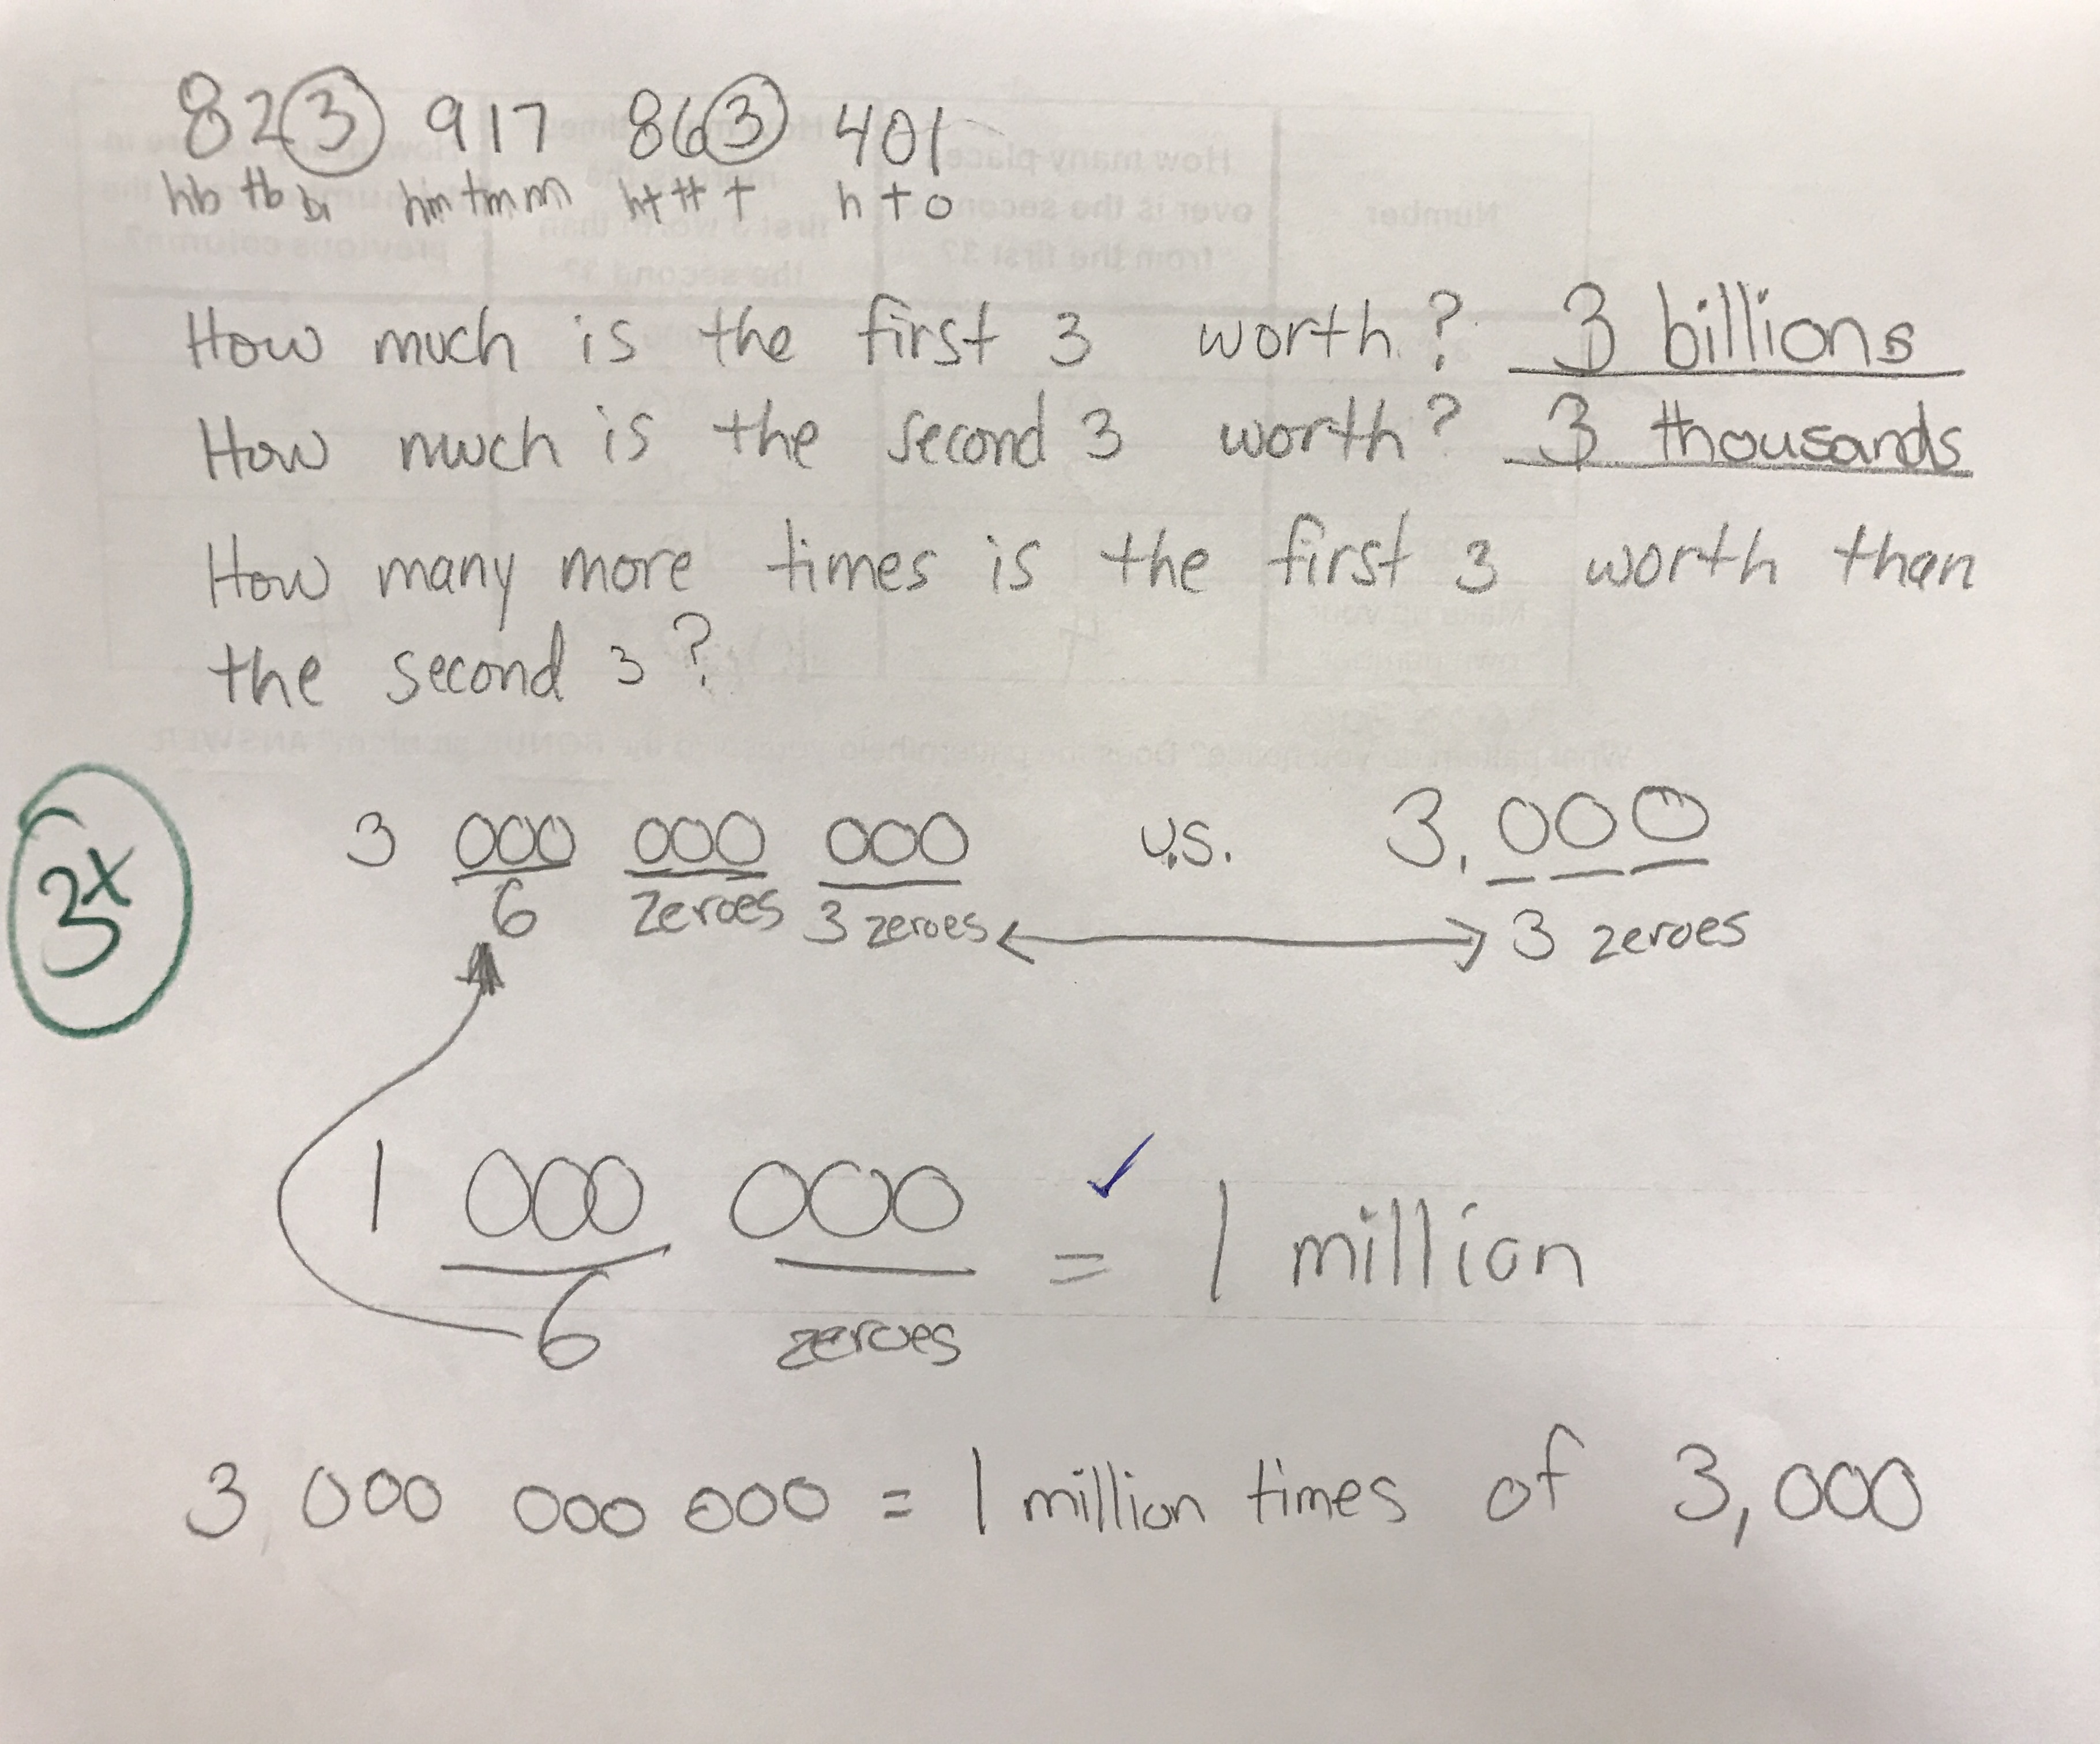 823 917 863 401
hb tb bi hm tm m ht tt t h t o
How much is the first 3 worth? 3 billions
How much is the second 3 worth? 3 thousands
How many more times is the first 3 worth than
the second 3?
3x
3 000 000 000 v.s. 3,000
6 zeroes 3 zeroes 3 zeroes
1 000 000 = 1 million
6 zeroes
3,000 000 000 = 1 million times of 3,000